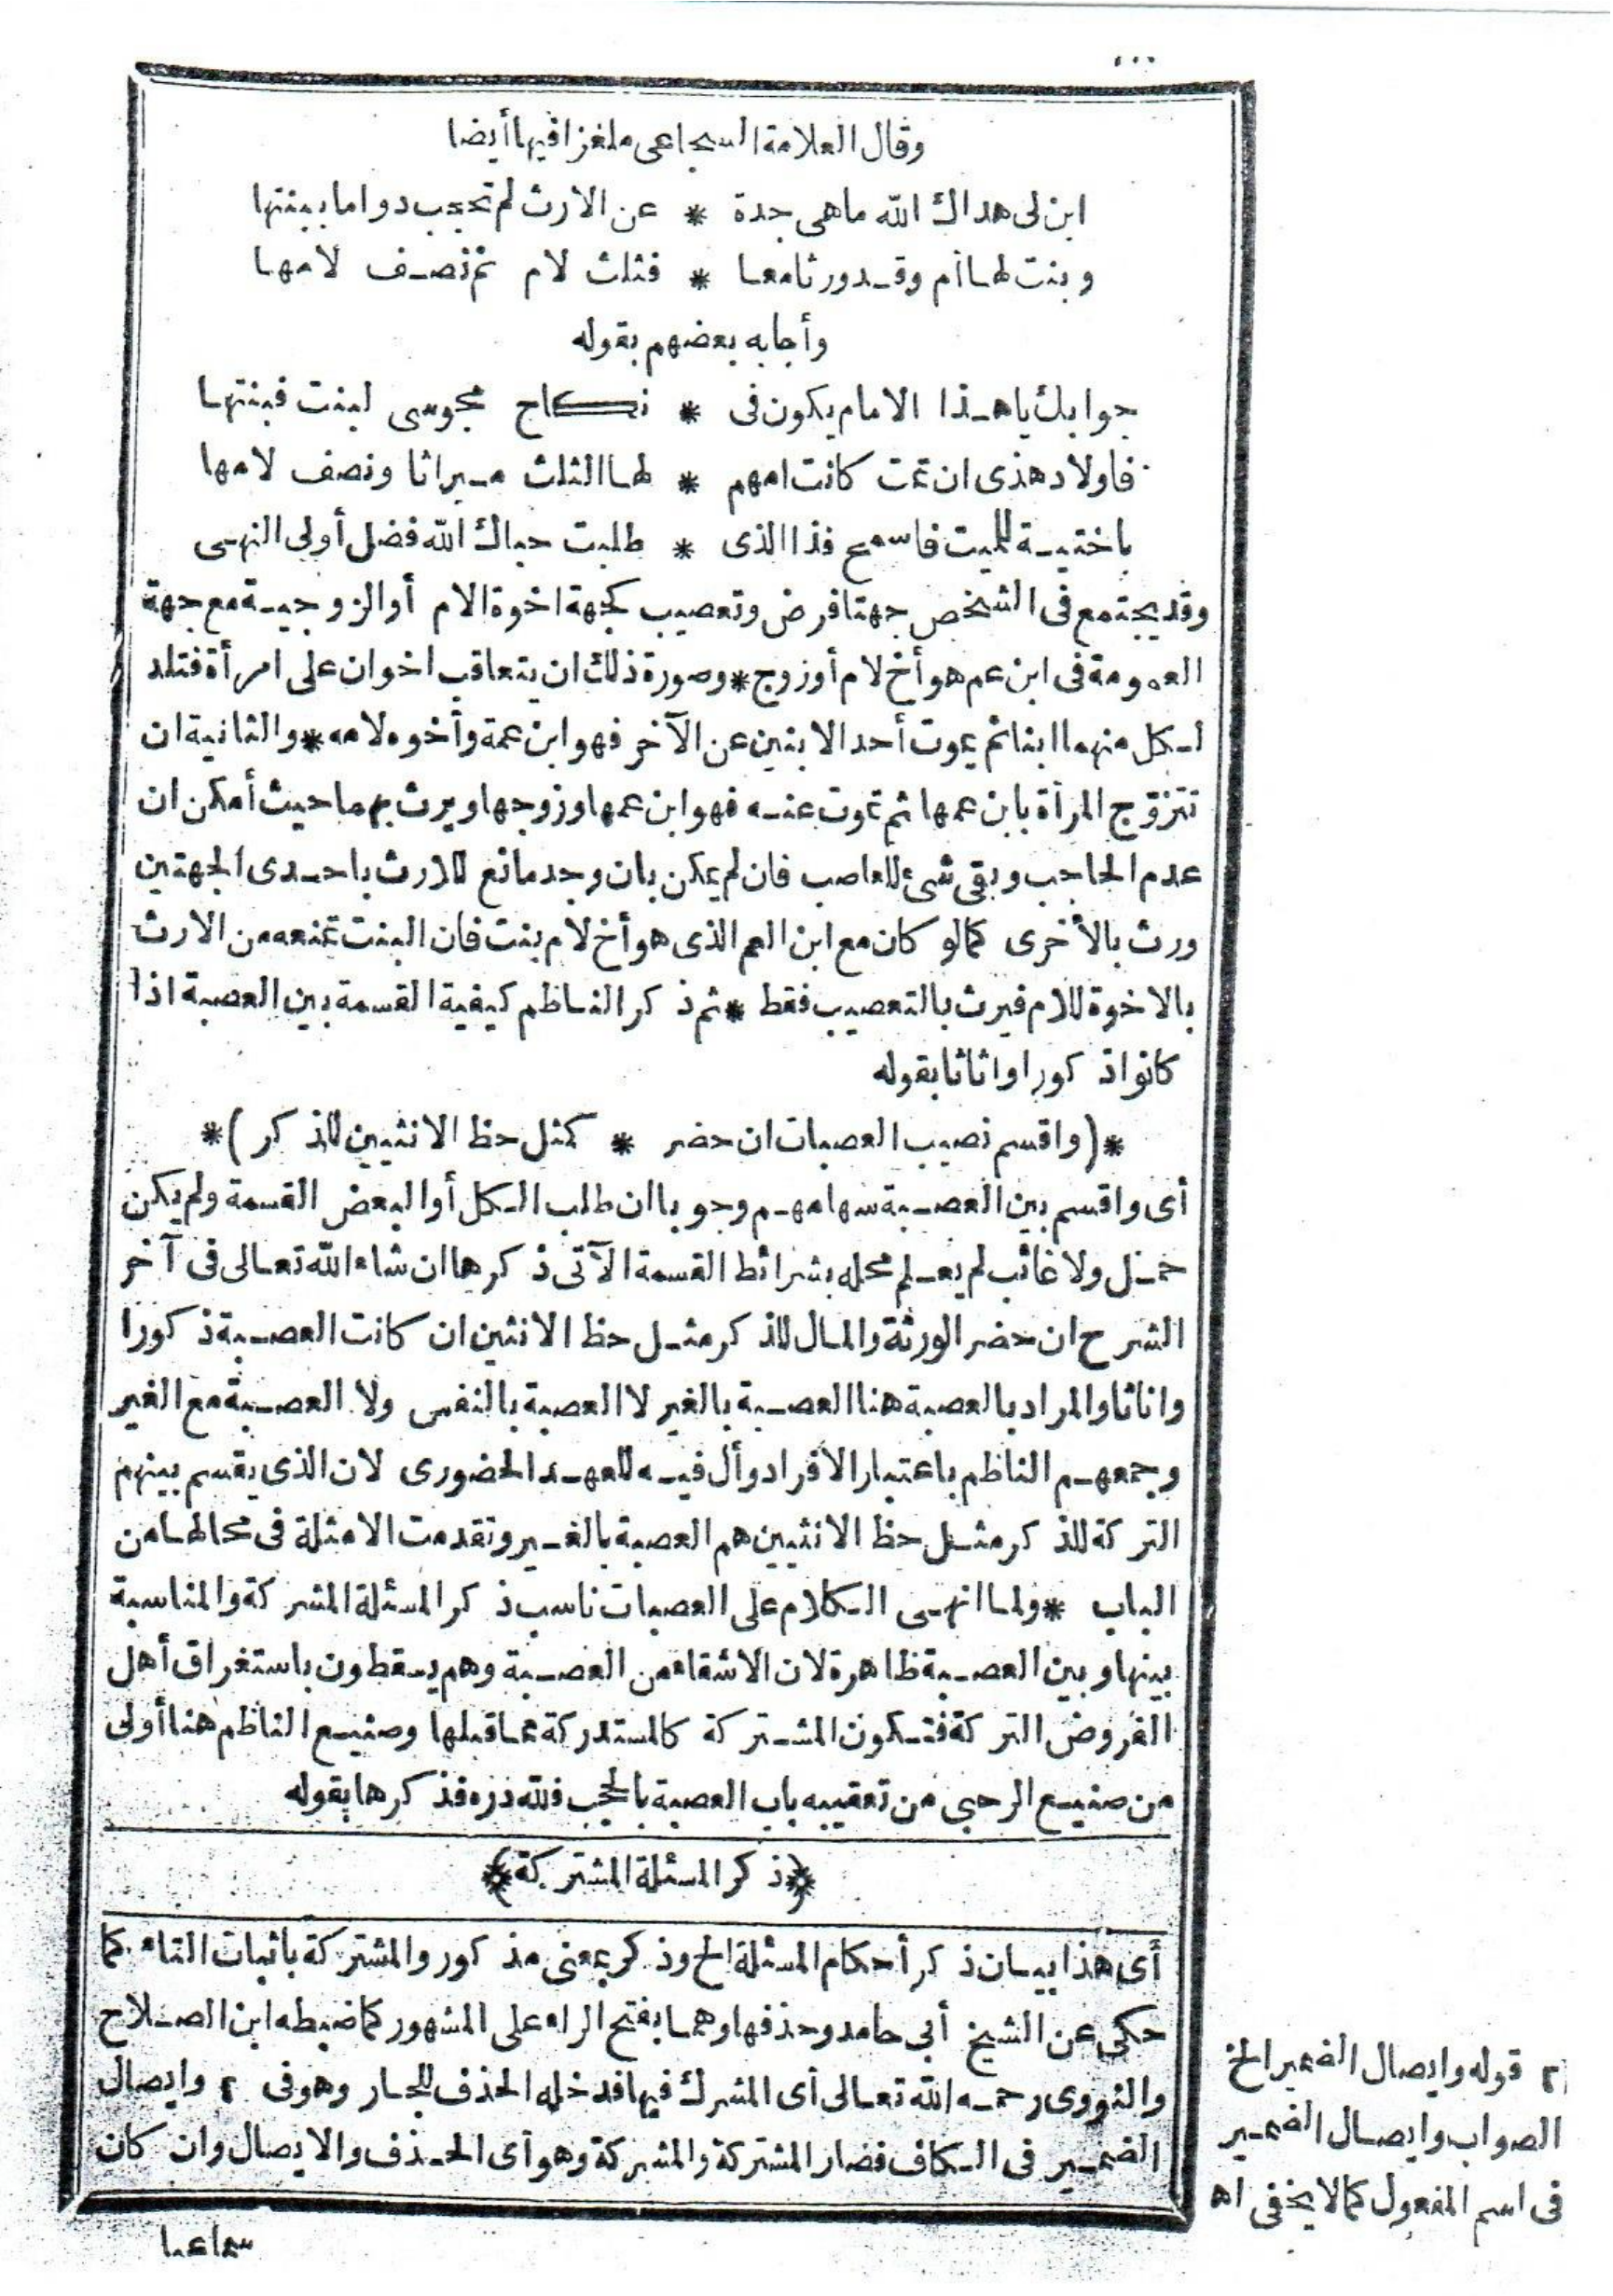 وقال العلامة السجاعى ملغزا فيها أيضا
ابن لى هداك الله ماهى جدة * عن الارث لم تحجب دواما ببنتها
وبنت لها أم وقد ورثا معا * فثلث لام ثم نصف لامها
وأجابه بعضهم بقوله
جوابك ياهذا الامام يكون فى * نكاح مجوسى لبنت فبنتها
فاولاد هذى ان تمت كانت امهم * لها الثلث ميراثا ونصف لامها
باختية للميت فاسمع فذا الذى * طلبت حباك الله فضل أولى النهى
وقد يجتمع فى الشخص جهتا فرض وتعصيب كجهة اخوة الام أو الزوجية مع جهة
العمومة فى ابن عم هو أخ لام أو زوج * وصورة ذلك ان يتعاقب اخوان على امرأة فتلد
لكل منهما ابنا ثم يموت أحد الابنين عن الآخر فهو ابن عمة وأخوه لامه * والثانية ان
تتزوج المرأة بابن عمها ثم تموت عنه فهو ابن عمها وزوجها ويرث بهما حيث أمكن ان
عدم الحاجب وبقى شئ للعاصب فان لم يمكن بان وجد مانع للارث باحدى الجهتين
ورث بالأخرى كما لو كان مع ابن العم الذى هو أخ لام بنت فان البنت تمنعه من الارث
بالاخوة للام فيرث بالتعصيب فقط * ثم ذكر الناظم كيفية القسمة بين العصبة اذا
كانوا ذكورا واناثا بقوله
*(واقسم نصيب العصبات ان حضر * كمثل حظ الانثيين للذكر)*
أى واقسم بين العصبة سهامهم وجوبا ان طلب الكل أو البعض القسمة ولم يكن
حمل ولا غائب لم يعلم محله بشرائط القسمة الآتى ذكرها ان شاء الله تعالى فى آخر
الشرح ان حضر الورثة والمال للذكر مثل حظ الانثيين ان كانت العصبة ذكورا
واناثا والمراد بالعصبة هنا العصبة بالغير لا العصبة بالنفس ولا العصبة مع الغير
وجمعهم الناظم باعتبار الافراد وأل فيه للعهد الحضورى لان الذى يقسم بينهم
التركة للذكر مثل حظ الانثيين هم العصبة بالغير وتقدمت الامثلة فى محالها من
الباب * ولما انهى الكلام على العصبات ناسب ذكر المسئلة المشركة والمناسبة
بينها وبين العصبة ظاهرة لان الاشقاء من العصبة وهم يسقطون باستغراق أهل
الفروض التركة فتكون المشتركة كالمستدركة مما قبلها وصنيع الناظم هنا أولى
من صنيع الرحبى من تعقيبه باب العصبة بالحجب فلله دره فذكرها بقوله
﴿ذكر المسئلة المشتركة﴾
أى هذا بيان ذكر أحكام المسئلة الخ وذكر بمعنى مذكور والمشتركة باثبات التاء كما
حكى عن الشيخ أبى حامد وحذفها وهما بفتح الراء على المشهور كما ضبطه ابن الصلاح
والنووى رحمه الله تعالى أى المشرك فيها فدخله الحذف للجار وهو فى ٢ وايصال
الضمير فى الكاف فصار المشتركة والمشركة وهو أى الحذف والايصال وان كان
سماعيا
٢ قوله وايصال الضمير الخ
الصواب وايصال الضمير
فى اسم المفعول كما لا يخفى اه